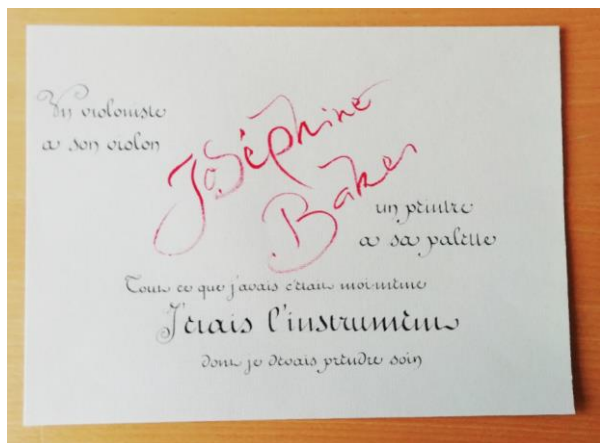 Un violoniste
a son violon
Joséphine
Baker
un peintre
a sa palette
Tout ce que j'avais c'était moi-même
J'étais l'instrument
dont je devais prendre soin